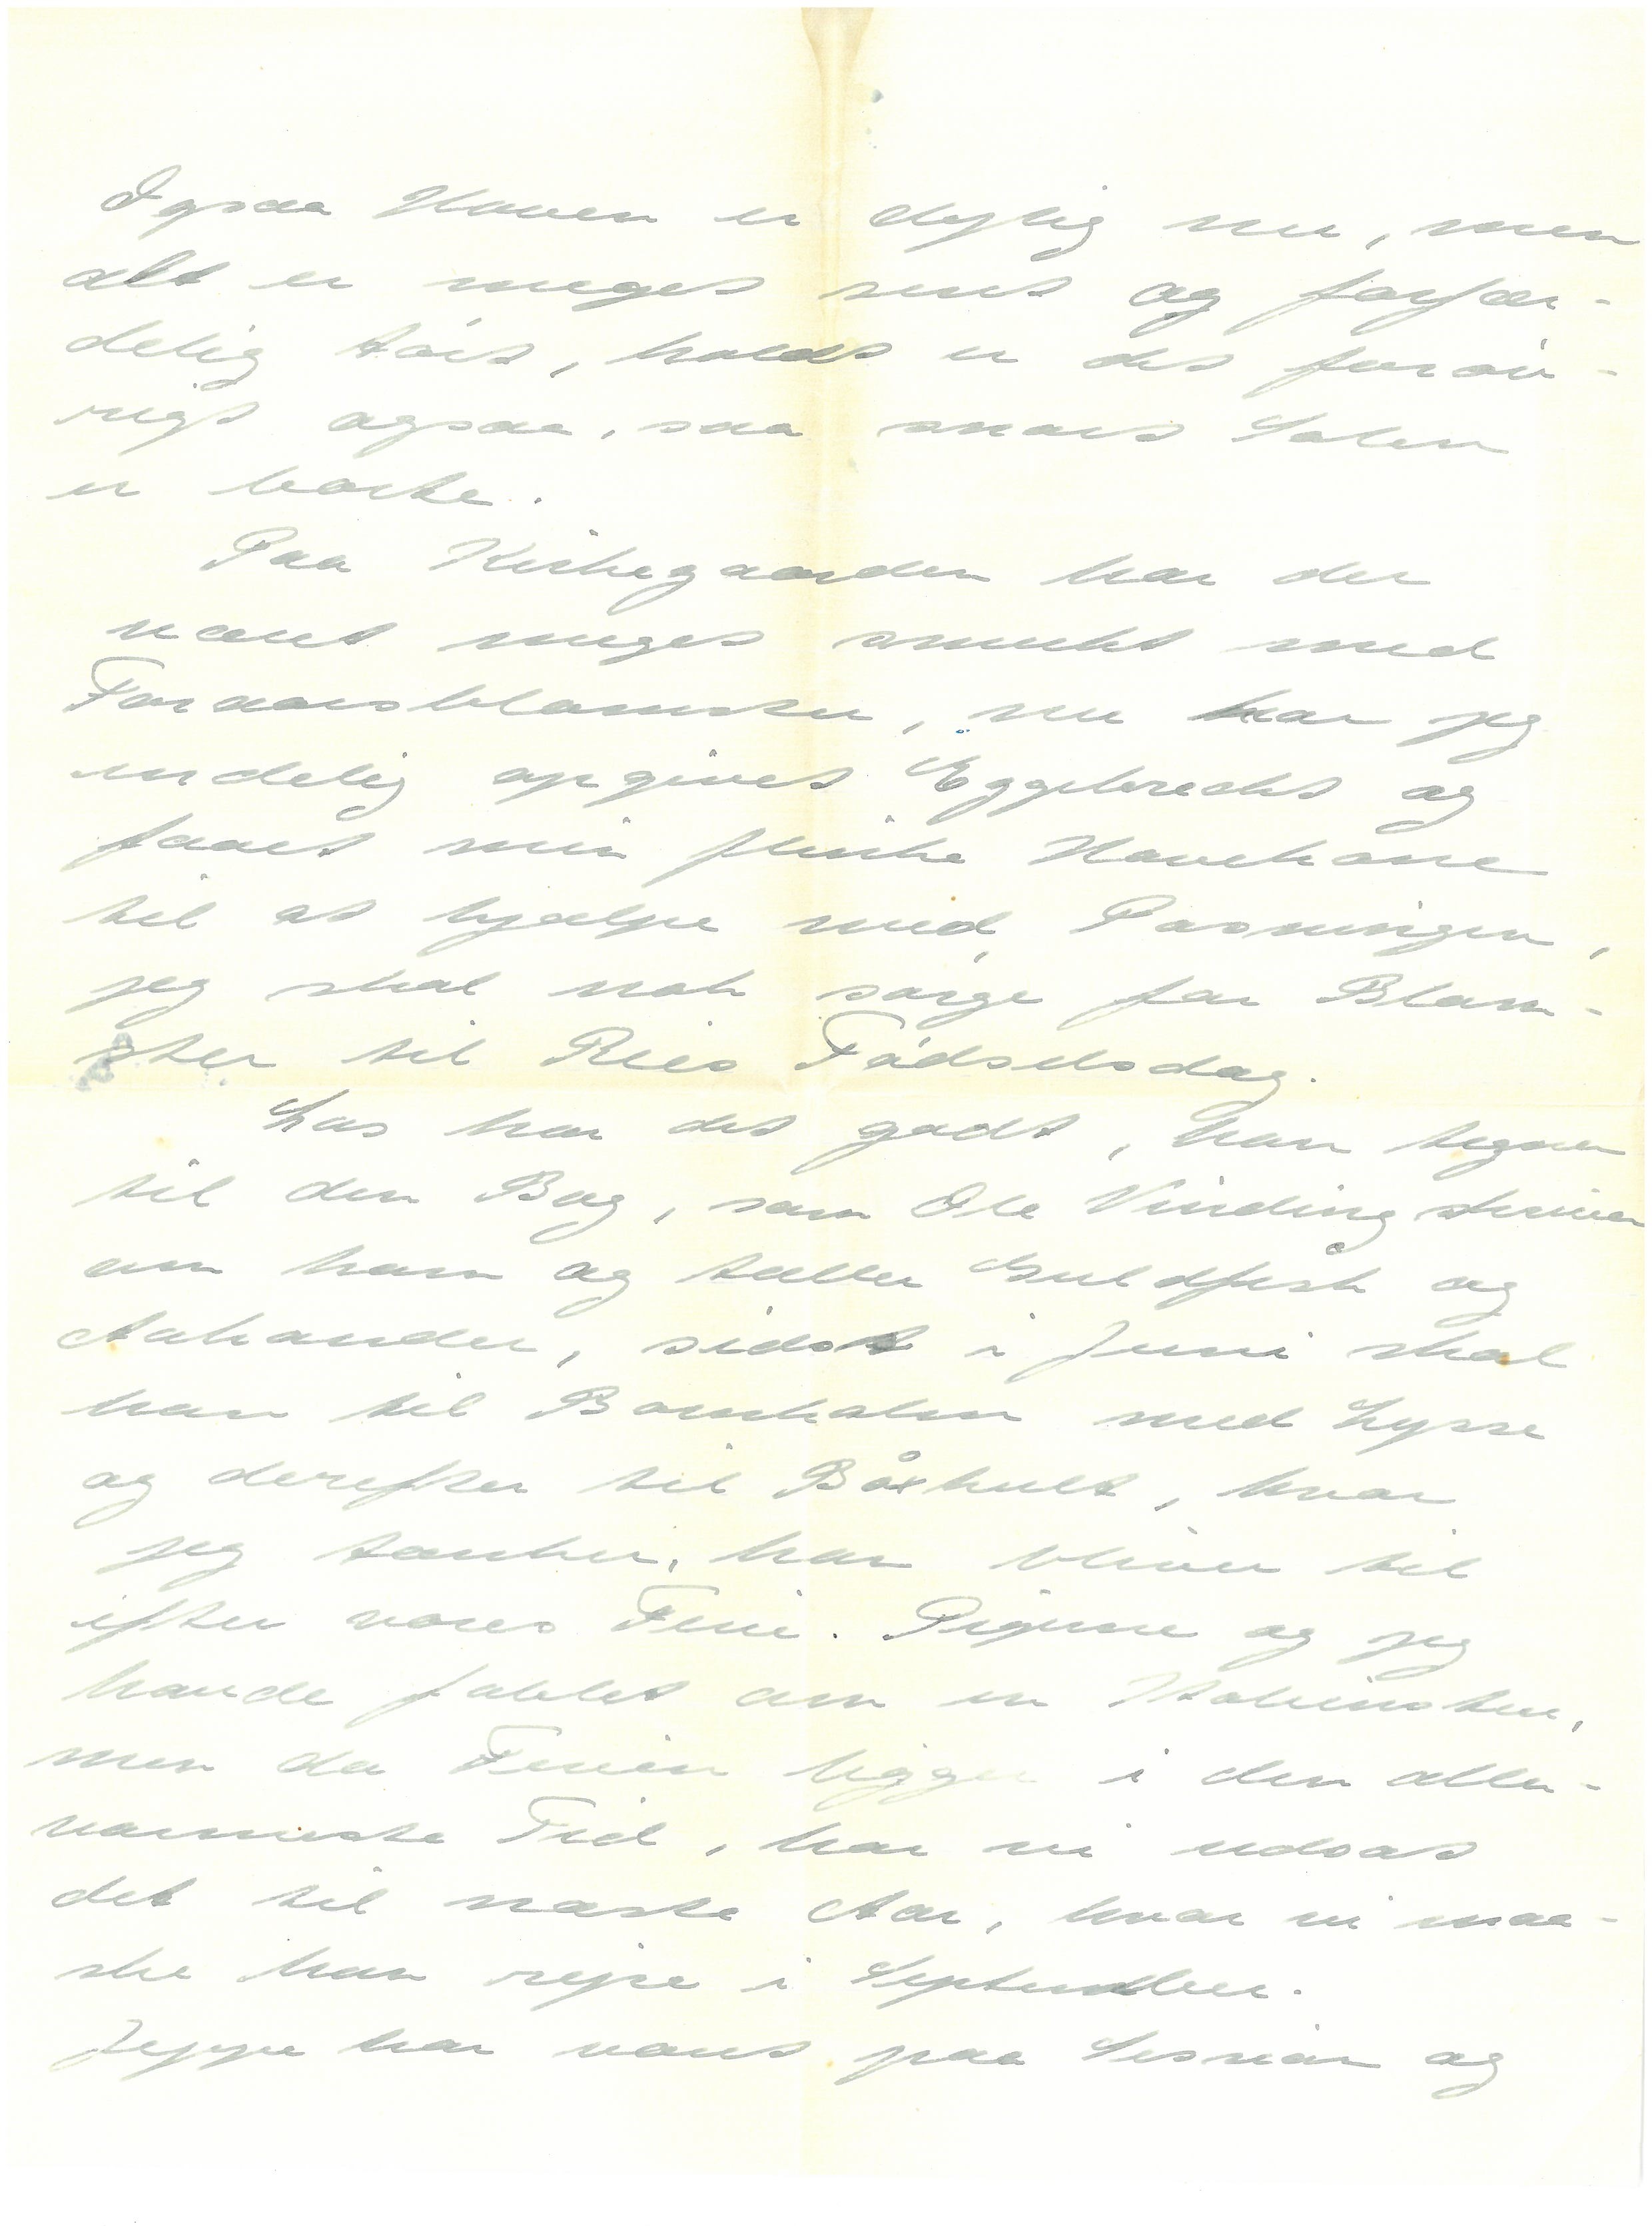 Ogsaa Haven er dejlig nu, men
alt er meget sent og forfær-
delig tørt, koldt er det forøv-
rigt ogsaa, saa snart Solen
er borte.
Paa Kirkegaarden har der
været meget smukt med
Foraarsblomster, nu har jeg
endelig opgivet Eggebrecht og
faaet min flinke Havekone
til at hjælpe med Pasningen,
jeg skal nok sørge for Blom-
ster til Dies Fødselsdag.
Las har det godt, han tegner
til den Bog, som Ole Vinding skriver
om ham og steller Guldfisk og
Aakander, sidst i Juni skal
han til Bornholm med Lysse
og derefter til Båxhult, hvor
jeg tænker, han bliver til
efter vores Ferie. Pigerne og jeg
havde fablet om en Italienstur,
men da Ferien ligger i den aller-
varmeste Tid, har vi udsat
det til næste Aar, hvor vi maa-
ske kan rejse i September.
Jeppe har været paa Session og